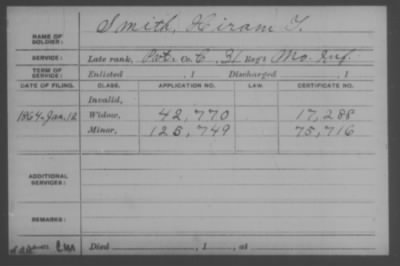 NAME OF SOLDIER: Smith, Hiram T.
SERVICE: Late rank, Pvt. Co. C, 31 Reg't Mo. Inf.
TERM OF SERVICE: Enlisted , 1 Discharged , 1
DATE OF FILING. CLASS. APPLICATION NO. LAW. CERTIFICATE NO.
Invalid,
1864, Jan. 12 Widow, 42,770 17,288
Minor, 123,749 75,716
ADDITIONAL SERVICES:
REMARKS:
Died , 1 , at